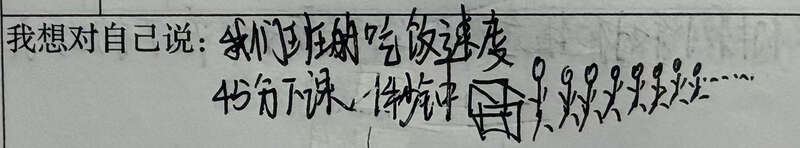 我想对自己说：我们班的吃饭速度
45分下课，体验中